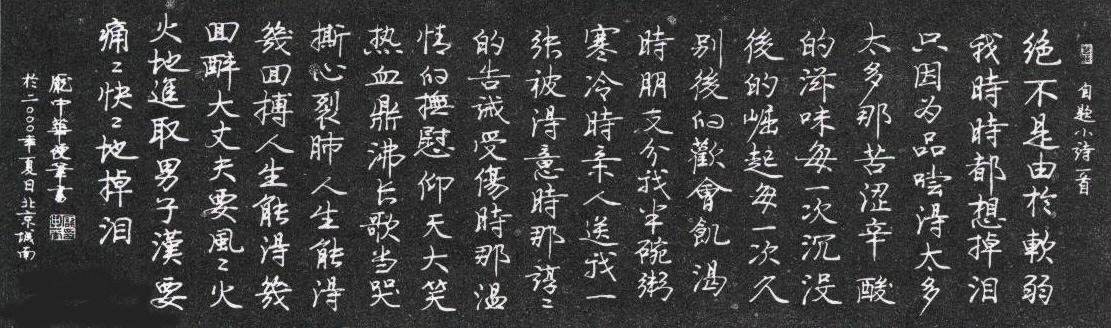 自题小诗一首
绝不是由於軟弱
我時時都想掉泪
只因为品嚐得太多
太多那苦涩辛酸
的滋味每一次沉没
後的崛起每一次久
别後的歡會飢渴
時朋友分我半碗粥
寒冷時亲人送我一
张被得意時那諄〻
的告诫受傷時那温
情的撫慰仰天大笑
热血鼎沸长歌当哭
撕心裂肺人生能得
幾回搏人生能得幾
回醉大丈夫要風〻火
火地進取男子漢要
痛〻快〻地掉泪
龐中華硬筆書
於二〇〇〇年夏日北京城南